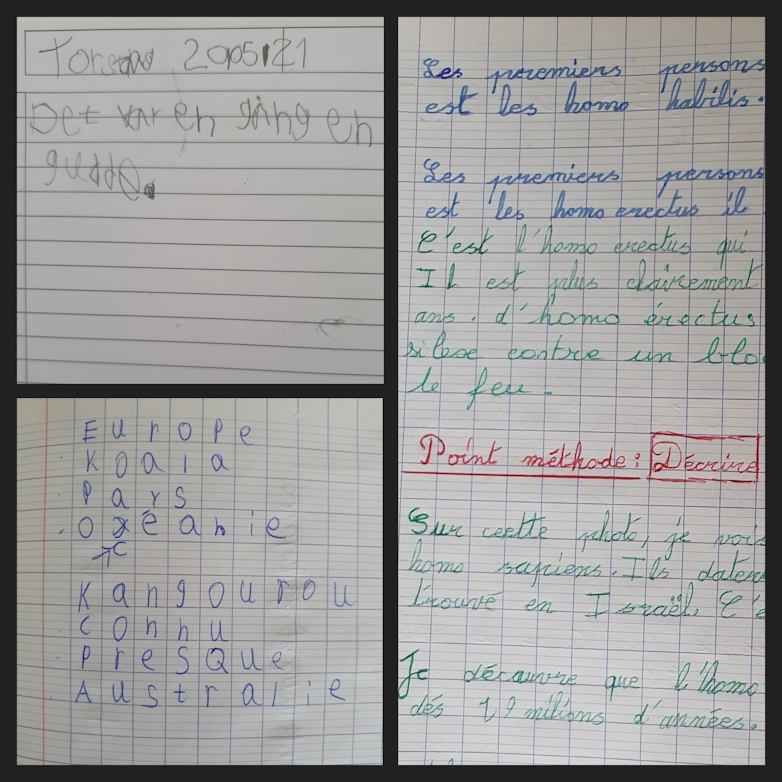 2005121
Det var en gång en
gubbe.
Europe
Koala
Pars
Oxéanie
c
Kangourou
Connu
Presque
Australie
Les premiers persons
est les homo habilis.
Les premiers persons
est les homo erectus il
C'est l'homo erectus qui
Il est plus clairement
ans. d'homo érectus
silese contre un blo
le feu.
Point méthode : Décrire
Sur ceette photo, je vois
homo sapiens. Ils daten
trouvé en Israël. C'e
Je découvre que l'homo
dés 1,9 milions d'années.